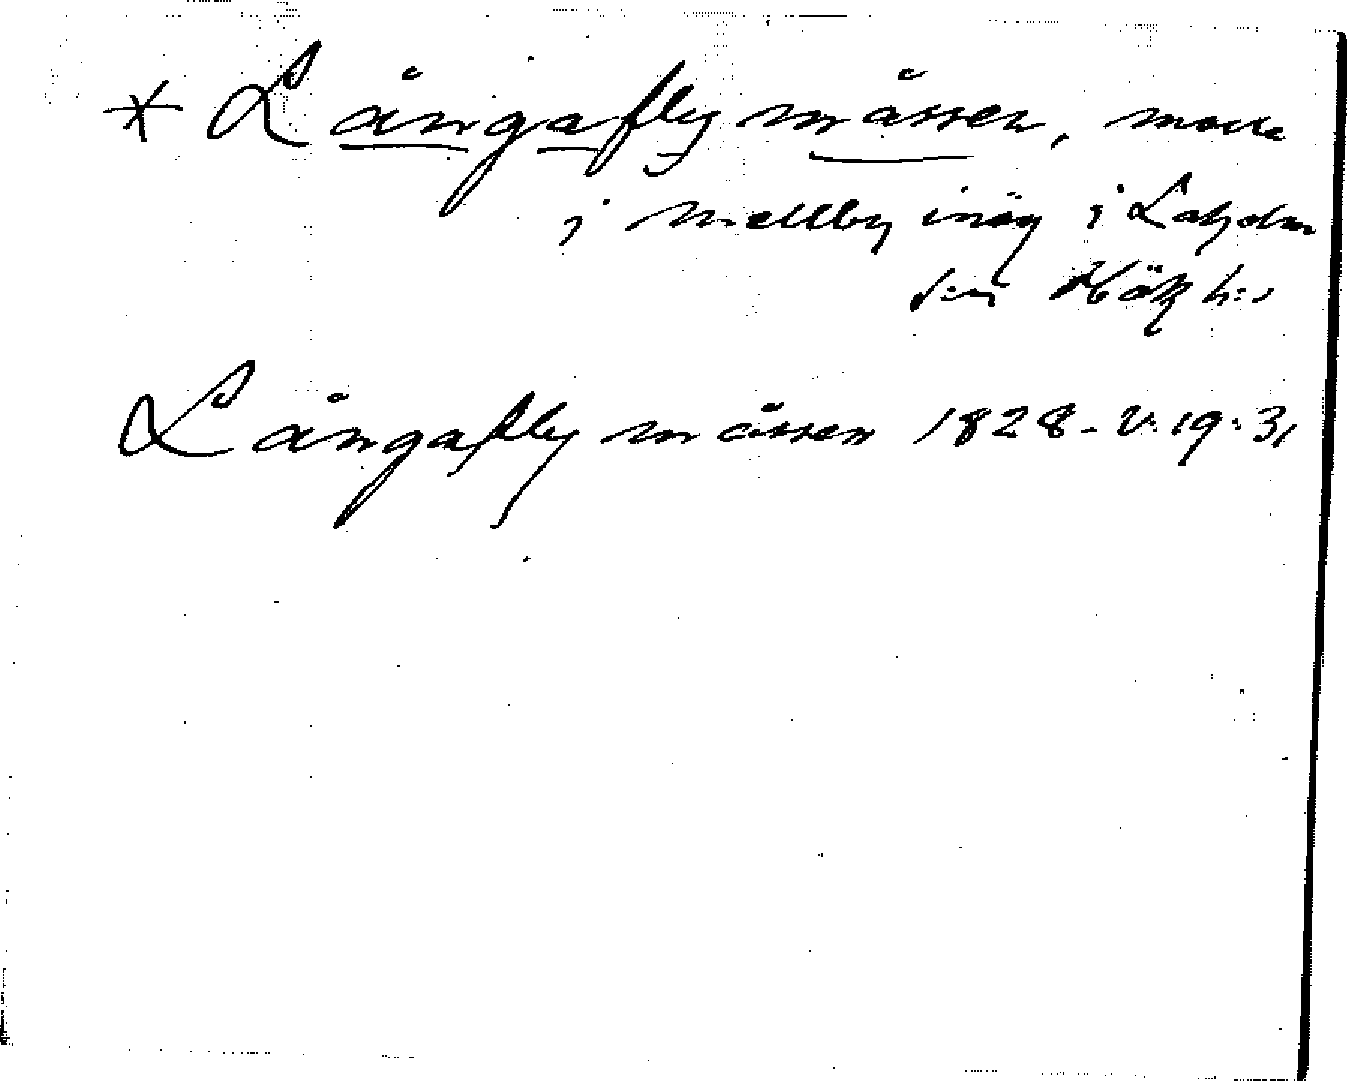 * Långafly måssen, mosse
i Mellby inäg i Laholm
s:n Hök h:d
Långafly måssen 1828-V:19:31